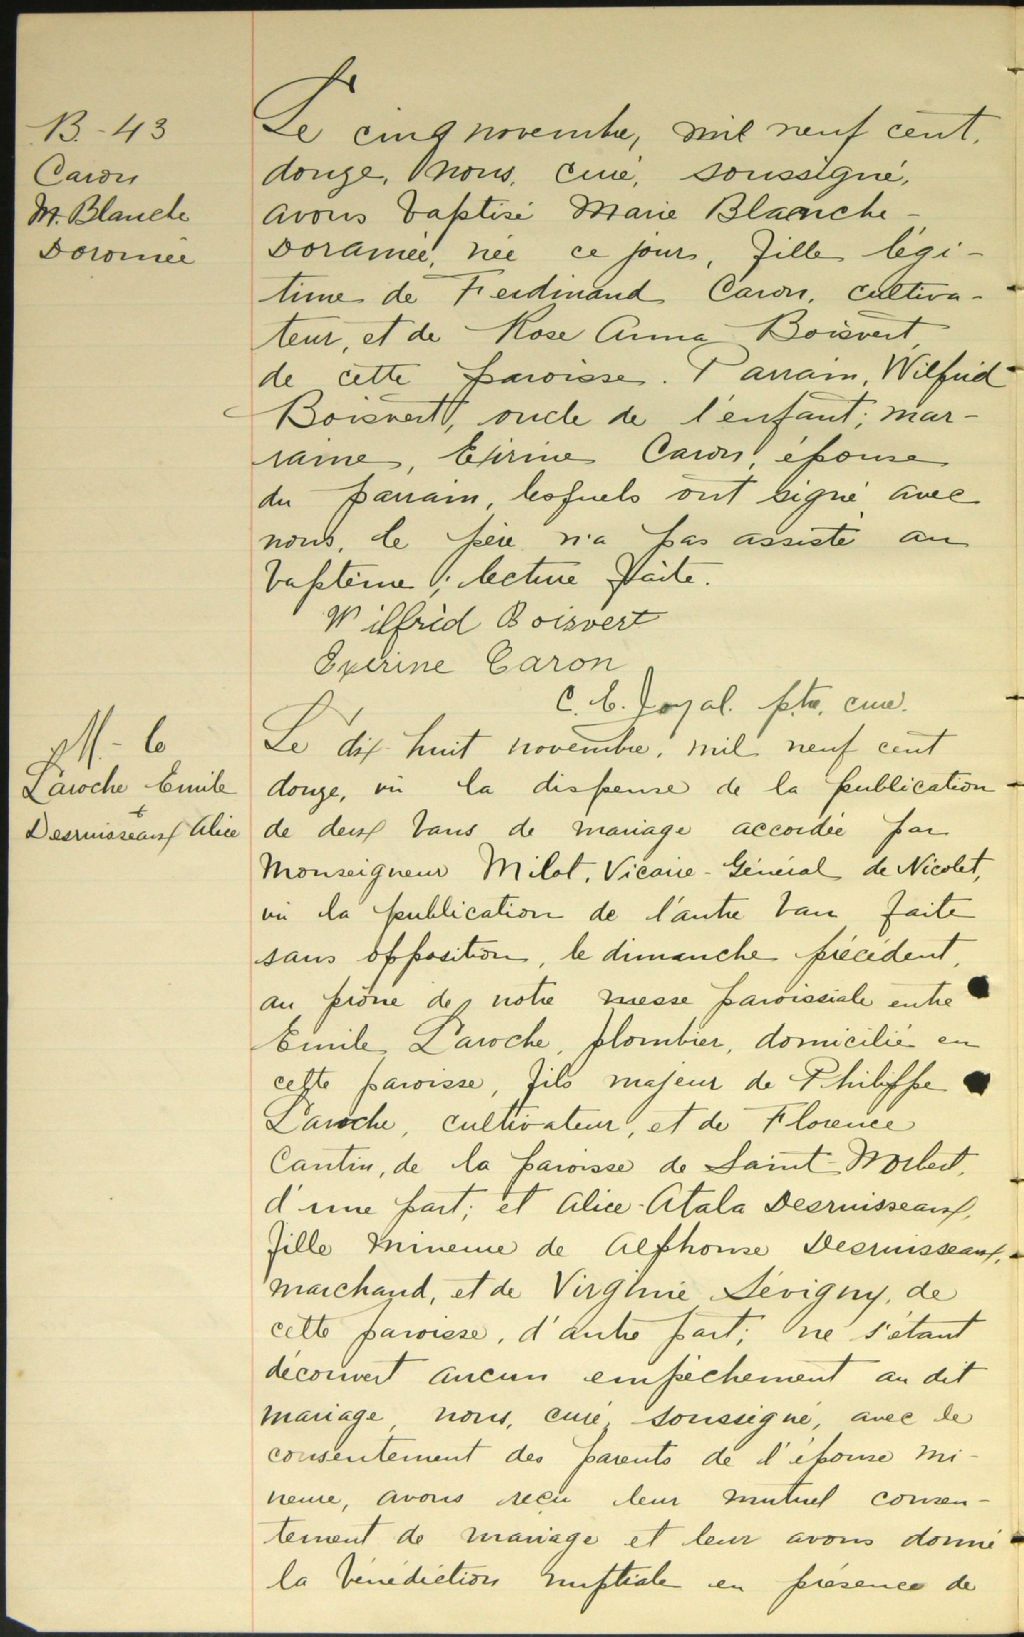 B.-43
Caron
M. Blanche
Doramée
Le cinq novembre, mil neuf cent,
douze, nous, curé, soussigné,
avons baptisé Marie Blanche-
Doramée, née ce jour, fille légi-
time de Ferdinand Caron, cultiva-
teur, et de Rose Anna Boisvert
de cette paroisse. Parrain, Wilfrid
Boisvert, oncle de l'enfant; mar-
raine, Exirine Caron, épouse
du parrain, lesquels ont signé avec
nous, le père n'a pas assisté au
baptême; lecture faite.
Wilfrid Boisvert
Exirine Caron
C. E. Joyal. ptre, curé.
M.-6
Laroche Emile
+
Desruisseaux Alice
Le dix huit novembre, mil neuf cent
douze, vu la dispense de la publication
de deux bans de mariage accordée par
Monseigneur Milot, Vicaire-Général de Nicolet,
vu la publication de l'autre ban faite
sans opposition, le dimanche précédent,
au prône de notre messe paroissiale entre
Emile Laroche, plombier, domicilié en
cette paroisse, fils majeur de Philippe
Laroche, cultivateur, et de Florence
Cantin, de la paroisse de Saint-Norbert,
d'une part; et Alice-Atala Desruisseaux,
fille mineure de Alphonse Desruisseaux,
marchand, et de Virginie Sévigny, de
cette paroisse, d'autre part; ne s'étant
découvert aucun empêchement au dit
mariage, nous, curé, soussigné, avec le
consentement des parents de l'épouse mi-
neure, avons reçu leur mutuel consen-
tement de mariage et leur avons donné
la bénédiction nuptiale en présence de